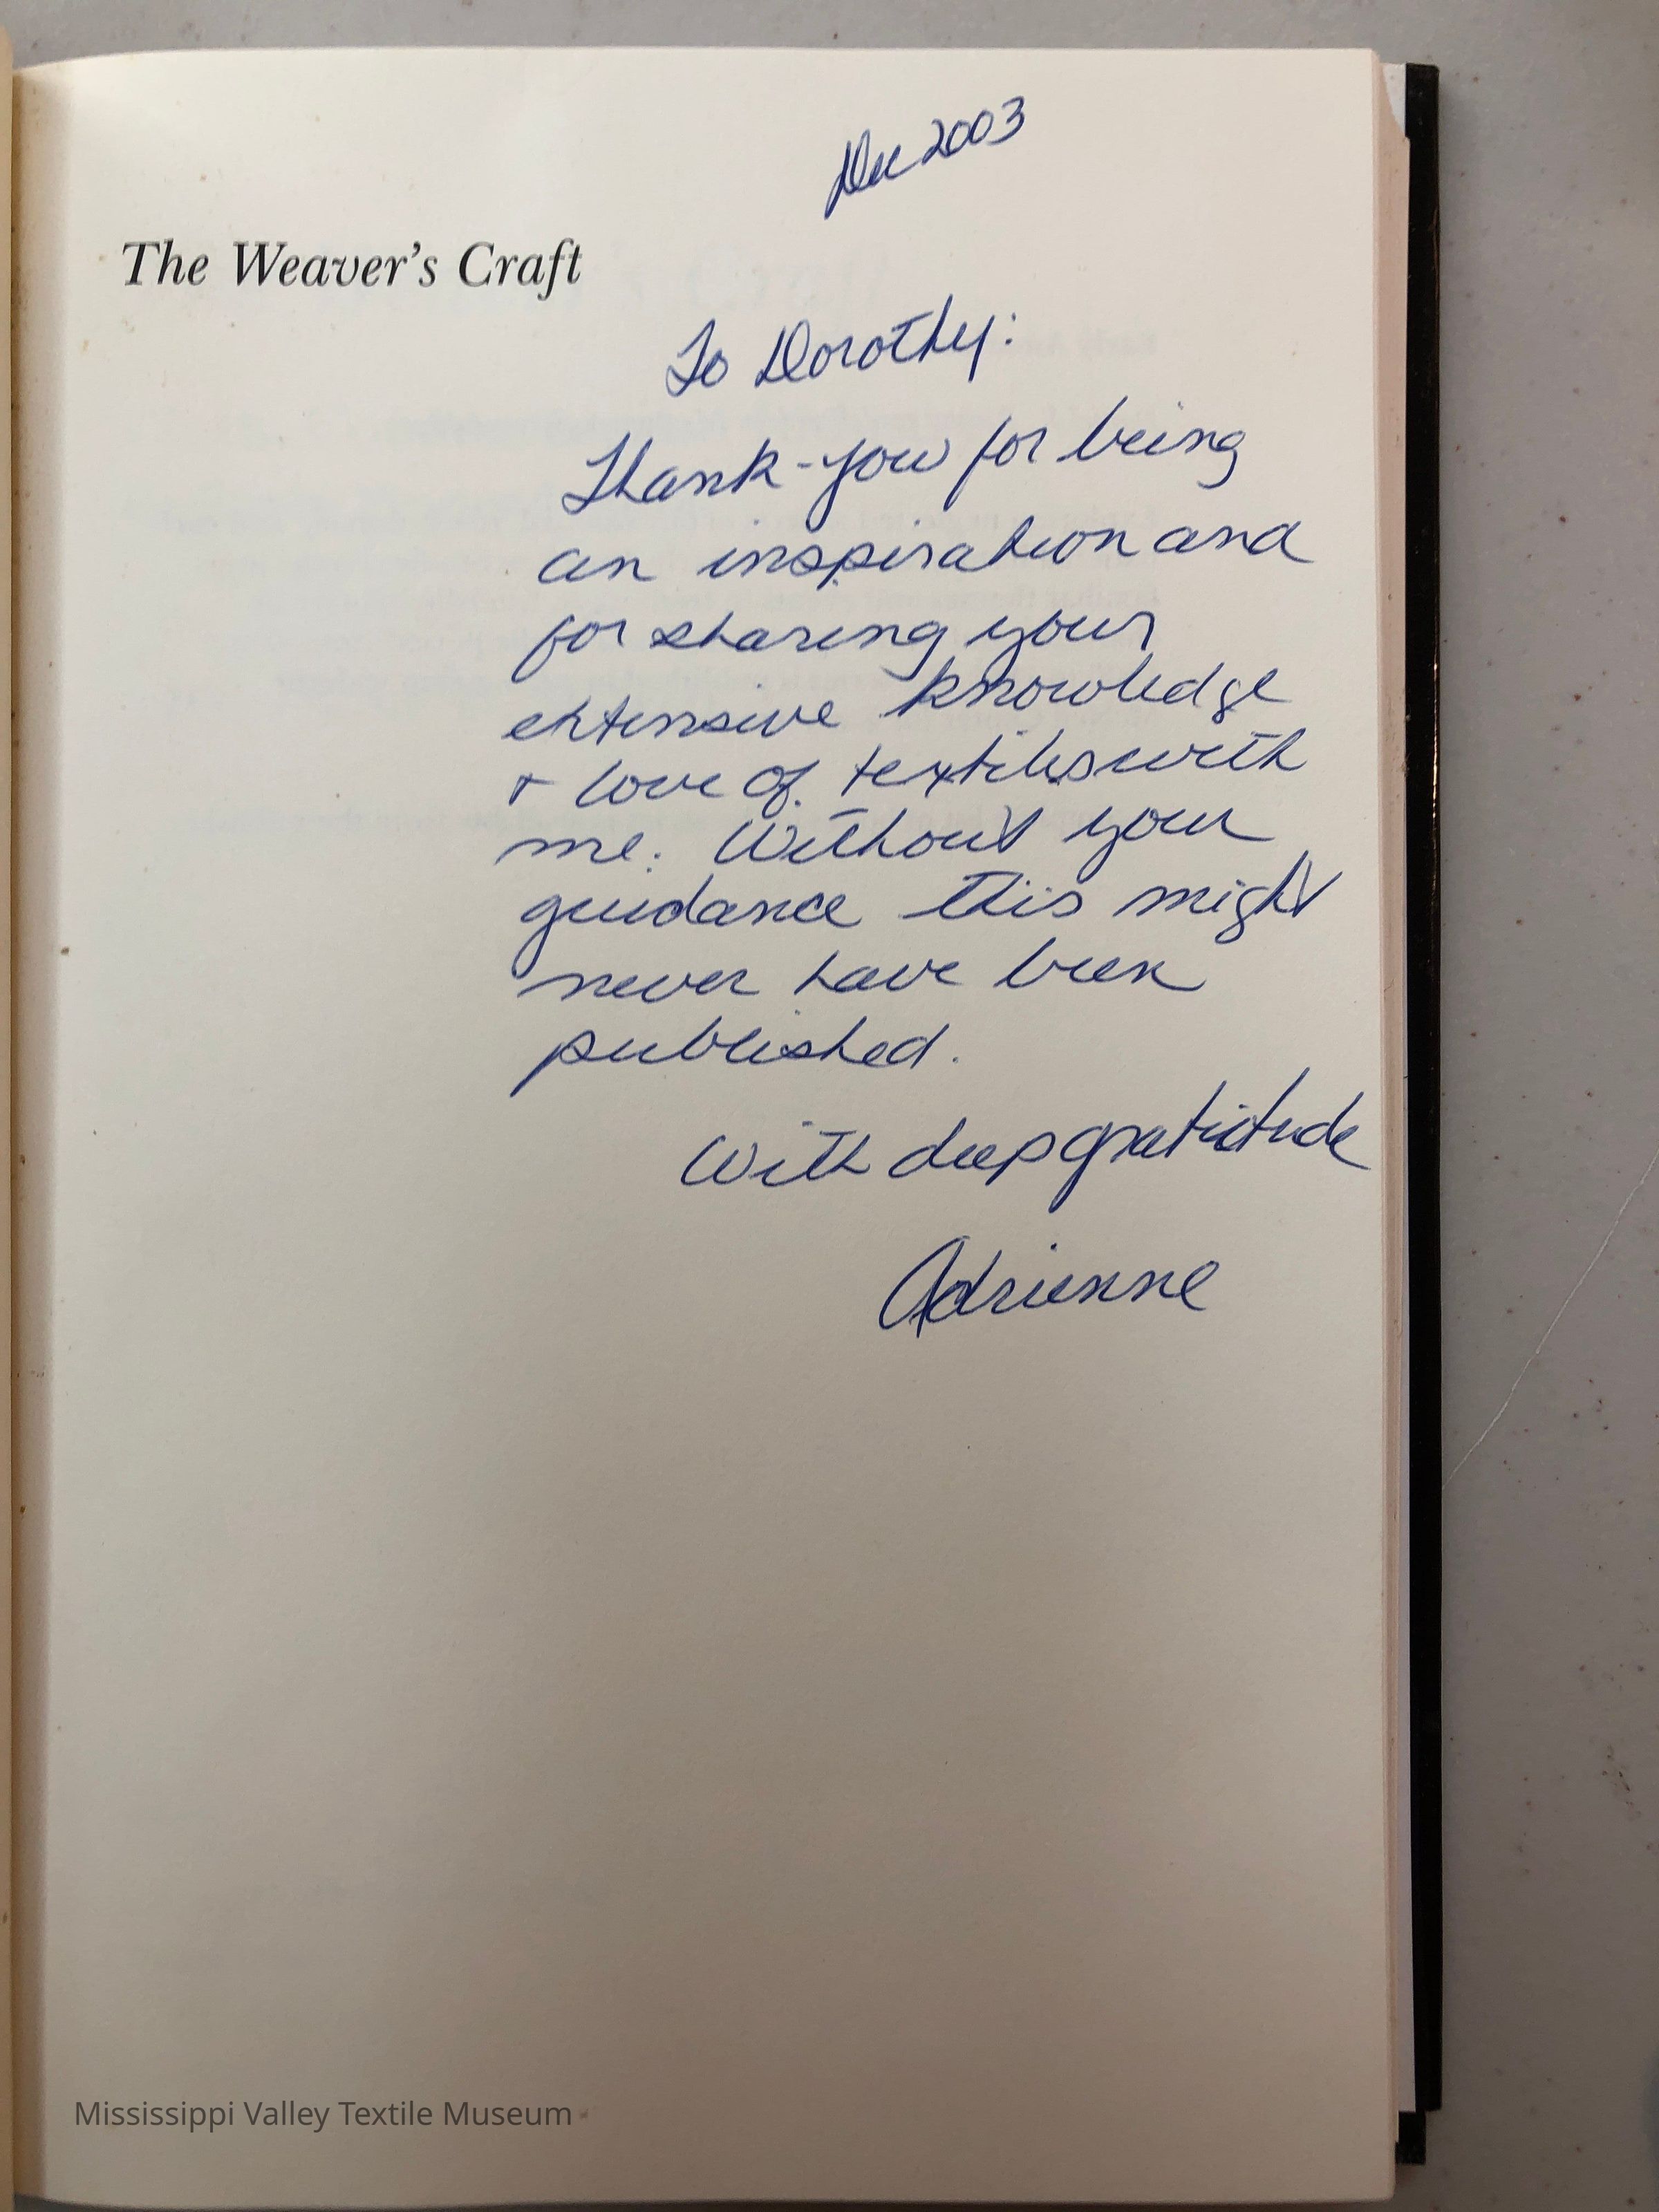 Dec 2003
The Weaver's Craft
To Dorothy:
Thank-you for being
an inspiration and
for sharing your
extensive knowledge
+ love of textiles with
me. Without your
guidance this might
never have been
published.
With deep gratitude
Adrienne
Mississippi Valley Textile Museum